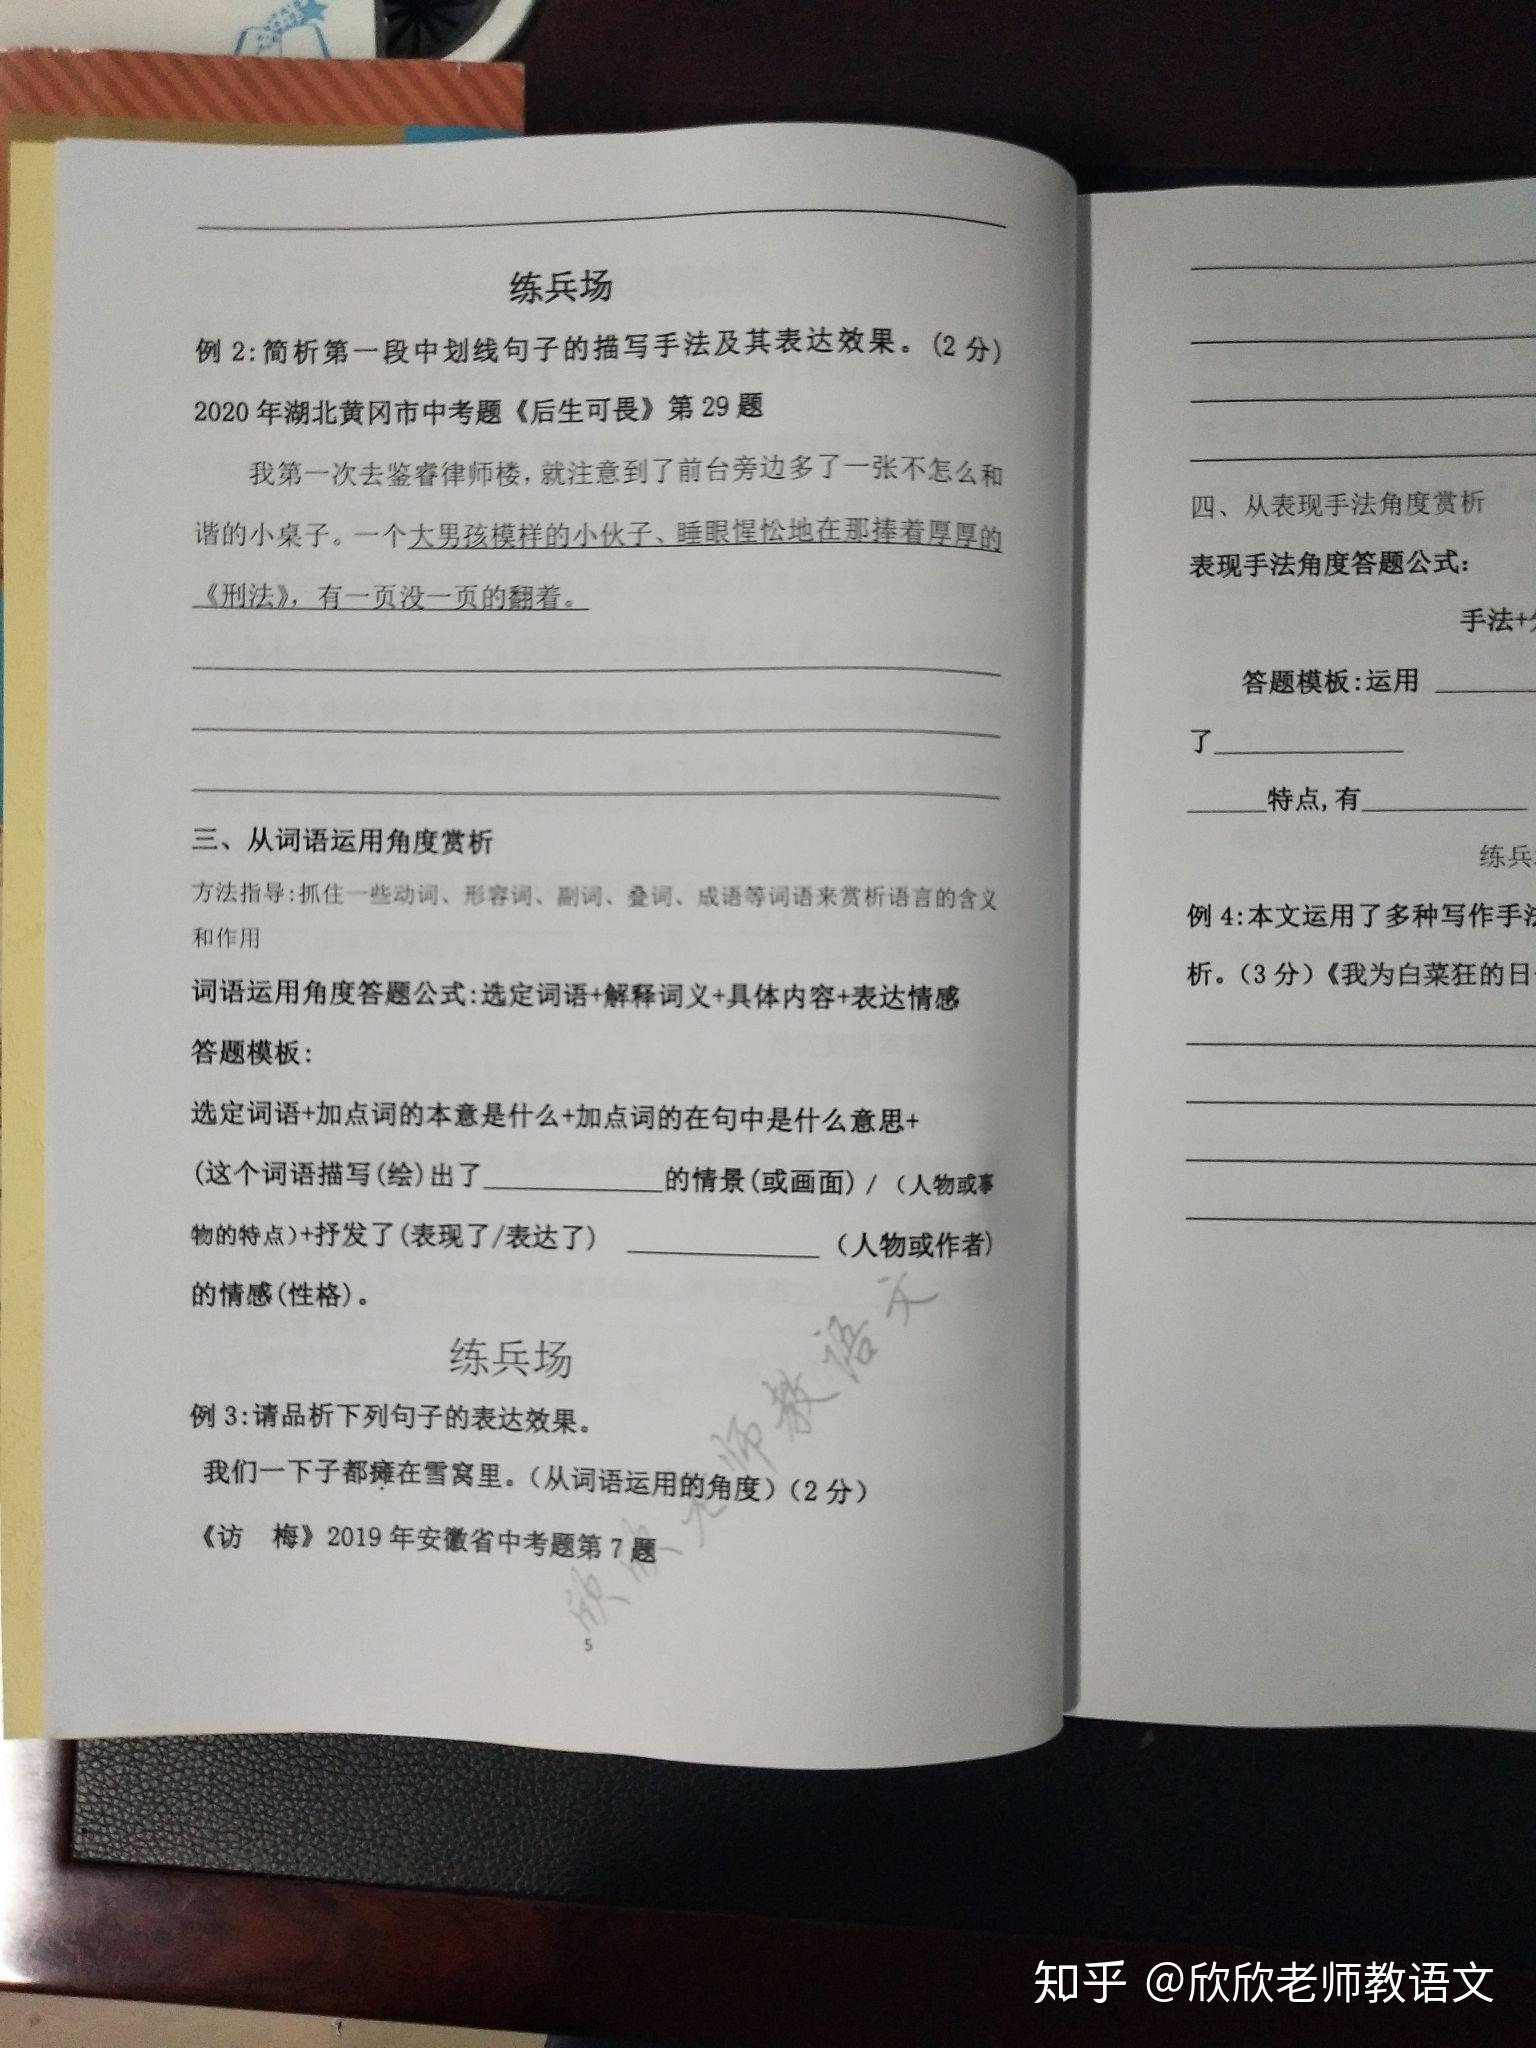 练兵场
例 2:简析第一段中划线句子的描写手法及其表达效果。(2 分)
2020 年湖北黄冈市中考题《后生可畏》第 29 题
我第一次去鉴睿律师楼,就注意到了前台旁边多了一张不怎么和
谐的小桌子。一个大男孩模样的小伙子、睡眼惺忪地在那捧着厚厚的
《刑法》，有一页没一页的翻着。
三、从词语运用角度赏析
方法指导:抓住一些动词、形容词、副词、叠词、成语等词语来赏析语言的含义
和作用
词语运用角度答题公式:选定词语+解释词义+具体内容+表达情感
答题模板:
选定词语+加点词的本意是什么+加点词的在句中是什么意思+
(这个词语描写(绘)出了____________的情景(或画面) / （人物或事
物的特点)+抒发了(表现了/表达了) ____________（人物或作者)
的情感(性格)。
练兵场
例 3:请品析下列句子的表达效果。
我们一下子都瘫在雪窝里。（从词语运用的角度）（2 分）
《访 梅》2019 年安徽省中考题第 7 题
欣欣老师教语文
5
四、从表现手法角度赏析
表现手法角度答题公式:
手法+
答题模板:运用 ______
了____________
_____特点,有__________
练兵
例 4:本文运用了多种写作手
析。（3 分）《我为白菜狂的日
知乎 @欣欣老师教语文